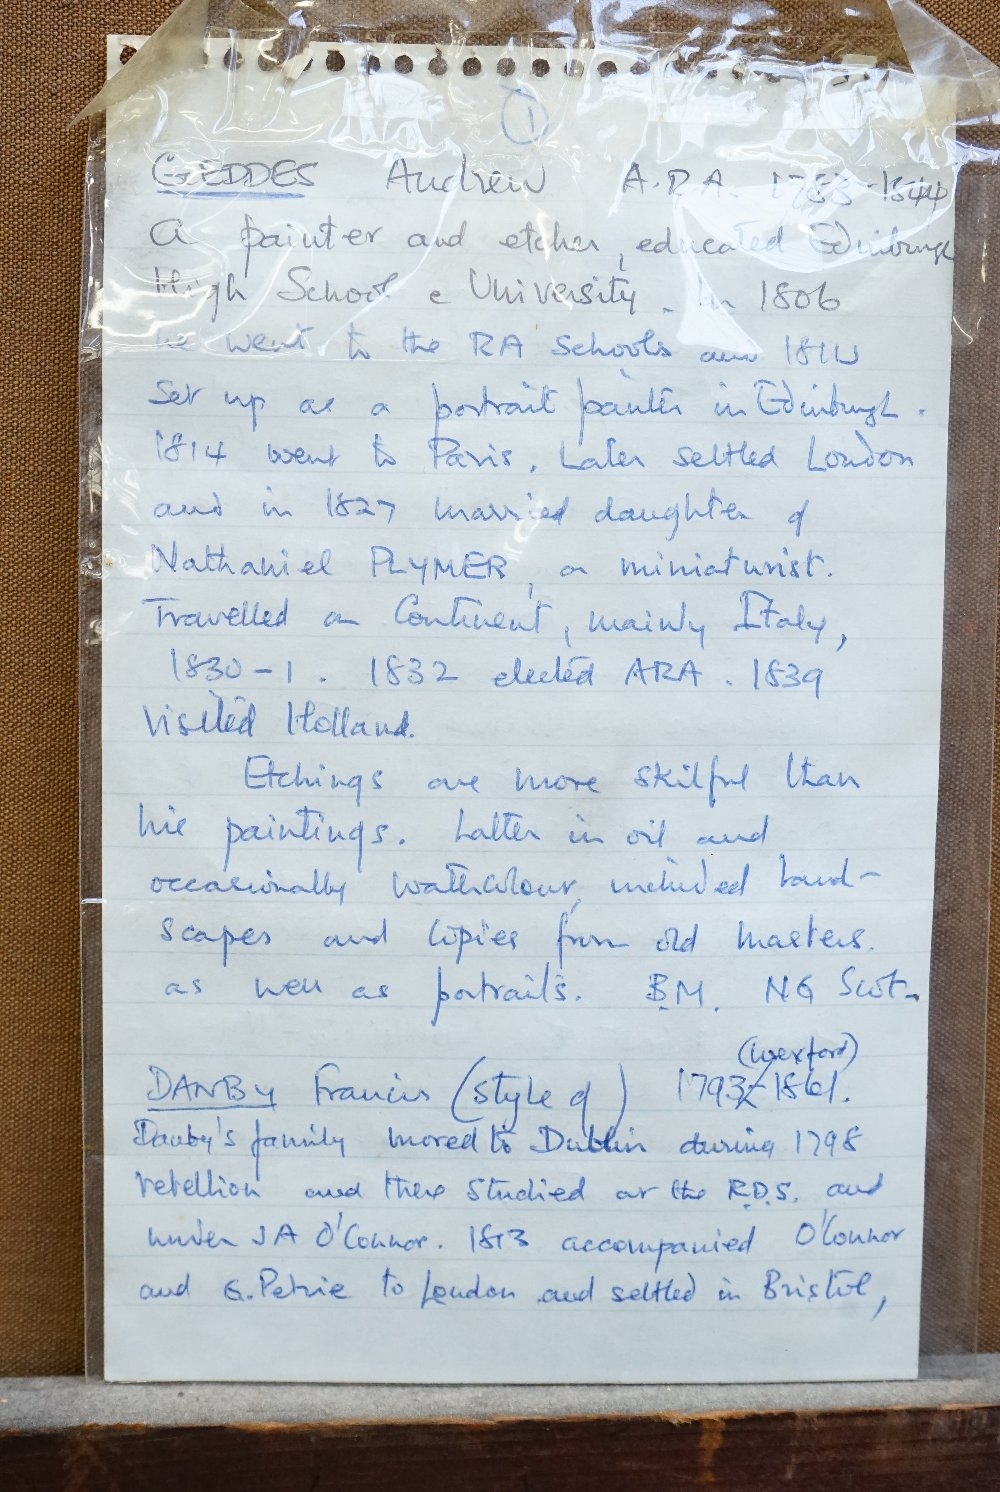 1
GEDDES Andrew A.R.A. 1783-1844
a painter and etcher, educated Edinburgh
High School e University. In 1806
he went to the RA Schools and 181
Set up as a portrait painter in Edinburgh.
1814 went to Paris. Later settled London
and in 1827 married daughter of
Nathaniel PLYMER, a miniaturist.
Travelled on Continent, mainly Italy,
1830-1. 1832 elected ARA. 1839
Visited Holland.
Etchings are more skilful than
his paintings. Latter in oil and
occasionally watercolour, included land-
scapes and copies from old masters.
as well as portraits. B.M. NG Scot-
(Wexford)
DANBY Francis (style of) 1793-1861.
Danby's family moved to Dublin during 1798
rebellion and there studied at the R.D.S. and
under JA O'Connor. 1813 accompanied O'Connor
and G. Petrie to London and settled in Bristol,